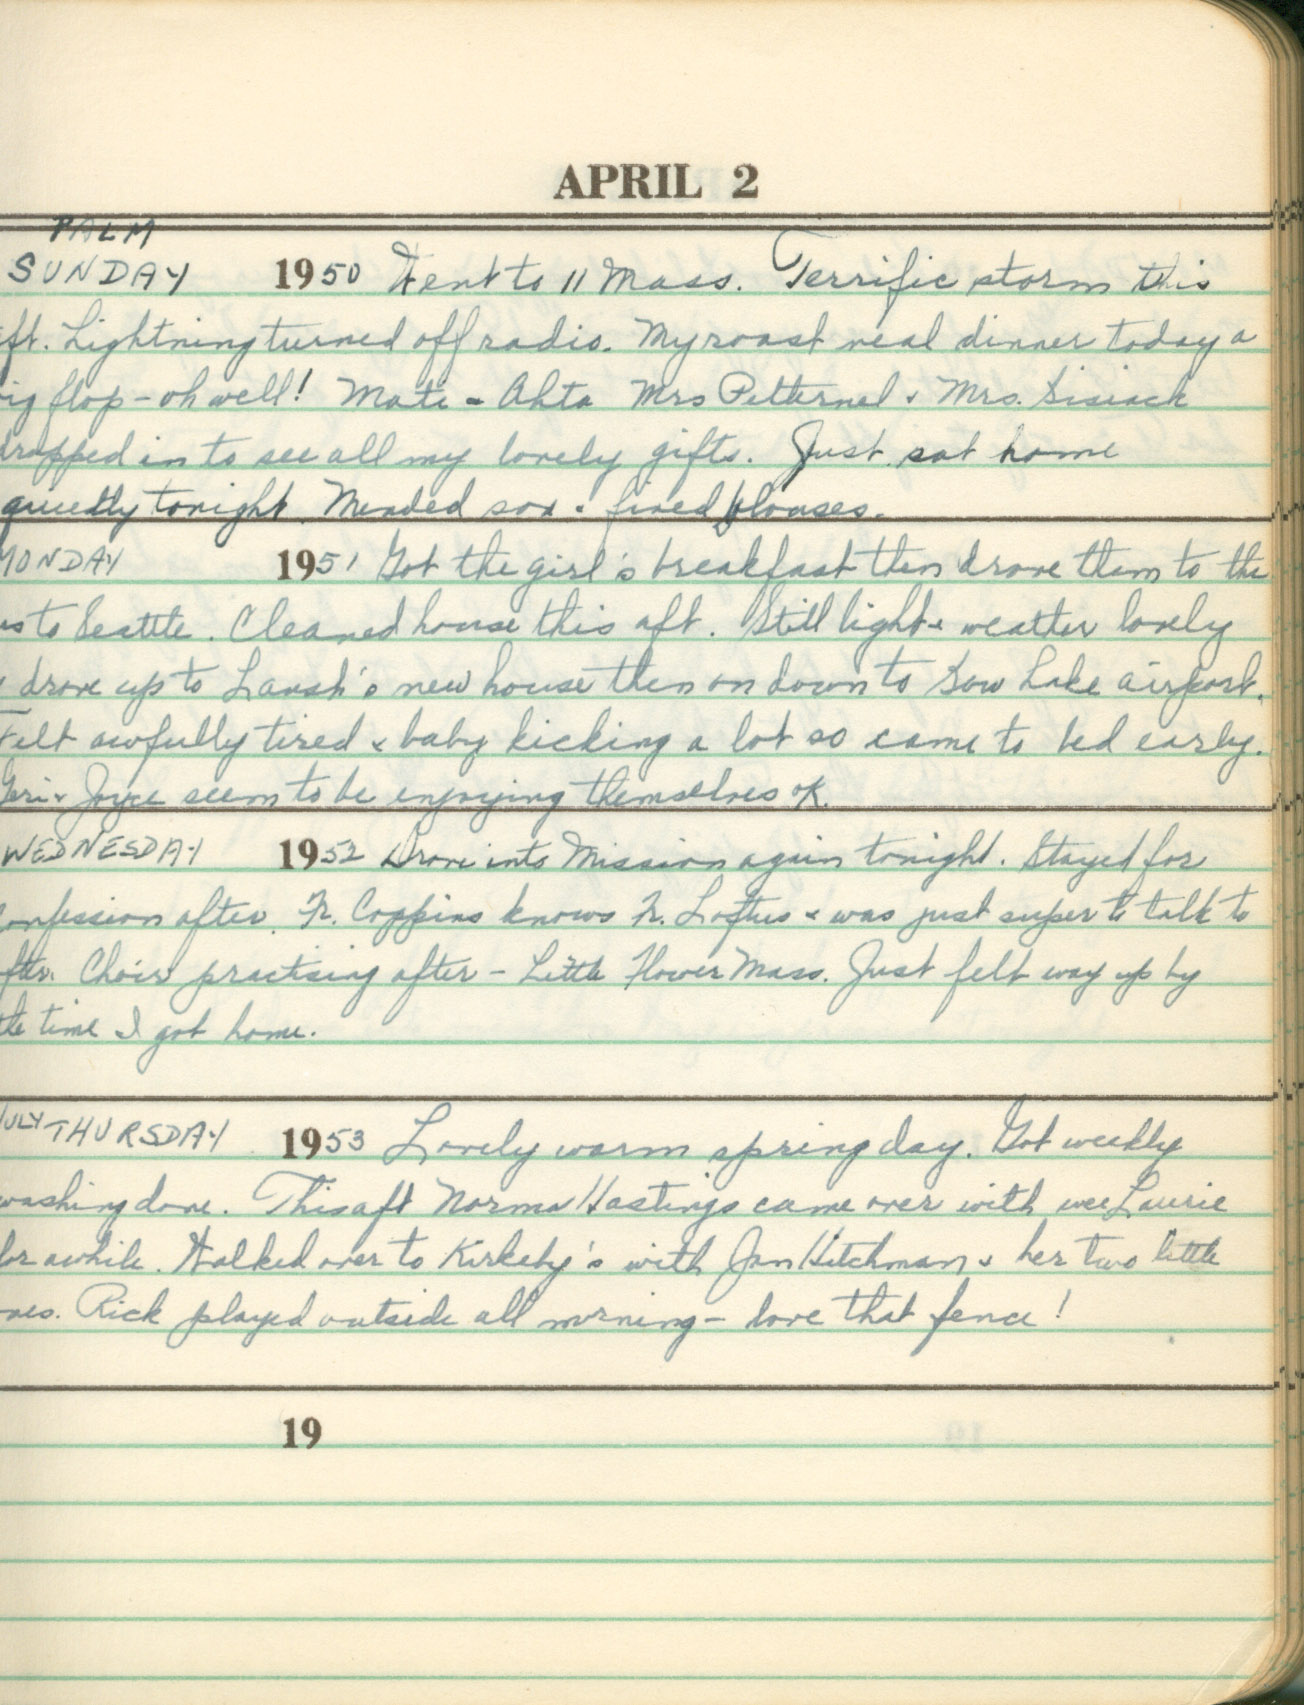 APRIL 2
PALM
SUNDAY 1950 Went to 11 Mass. Terrific storm this
aft. Lightning turned off radio. My roast veal dinner today a
big flop - oh well! Mate - Ahta Mrs Petternel & Mrs.
dropped in to see all my lovely gifts. Just sat home
quietly tonight. Mended sox & fixed blouses.
MONDAY 1951 Got the girl's breakfast then drove them to the
bus to Seattle. Cleaned house this aft. Still light & weather lovely
drove up to new house then on down to airport.
Felt awfully tired & baby kicking a lot so came to bed early.
Geri & Joyce seem to be enjoying themselves ok.
WEDNESDAY 1952 Drove into Mission again tonight. Stayed for
confession after. Fr. Coppins knows Fr. Loftus & was just super to talk to
after. Choir practising after - Little Flower Mass. Just felt way up by
the time I got home.
THURSDAY 1953 Lovely warm spring day. Got weekly
washing done. This aft Norma Hastings came over with wee Laurie
for awhile. Walked over to Kirkeby's with Jan Hitchman & her two little
ones. Rick played outside all morning - love that fence!
19